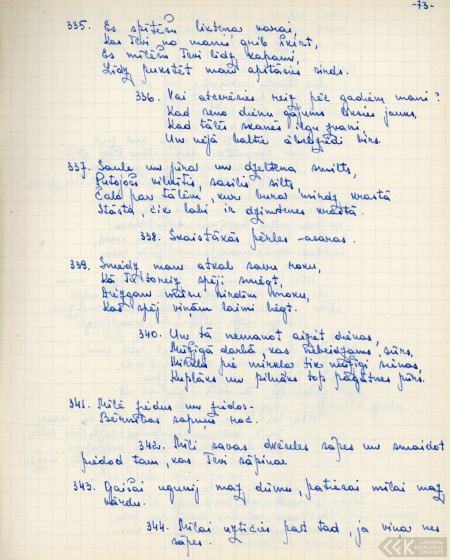 -73-
335. Es spītēšu liktena varai
Kas Tevi no manis grib šķirt,
Es mīlēšu Tevi līdz kapam,
Līdz pukstēt man apstāsies sirds.
336. Vai atcerēsies reiz pēc gadiem mani?
Kad seno dienu gājums liksies jauns,
Kad tālēs skanēs ilgu zvani
Un vējā baltie ābeļziedi birs.
337. Saule un jūra un dzeltena smilts,
Putojošs vilnītis, sasilis silts
Čalo par tālēm, kur bura mirdz krastā
Stāsta, cik labi ir dzimtenes krastā.
338. Skaistākās pērles - asaras.
339. Sniedz man atkal savu roku,
Kā Tu toreiz spēji sniegt,
Aizgan mūsu sirdīm moku,
Kas spēj viņām laimi liegt.
340. Un tā nemanot aiziet dienas,
Mūžīgā darbā, kas nebeidzams, sūrs,
Mirklis pie mirkļa tik mūžīgi sienas,
Kuplāks un pilnāks top pagātnes pūrs.
341. Mīlē ziedus un ziedos-
Bērnības sapņus rod.
342. Mīli savas dvēseles sāpes un smaidot
piedod tam, kas Tevi sāpina.
343. Gaišai ugunij maz dūmu, patiesai mīlai maz
vārdu.
344. Mīlai uzticies pat tad, ja viņa nes
sāpes.
LATVIEŠU
FOLKLORAS
KRĀTUVE